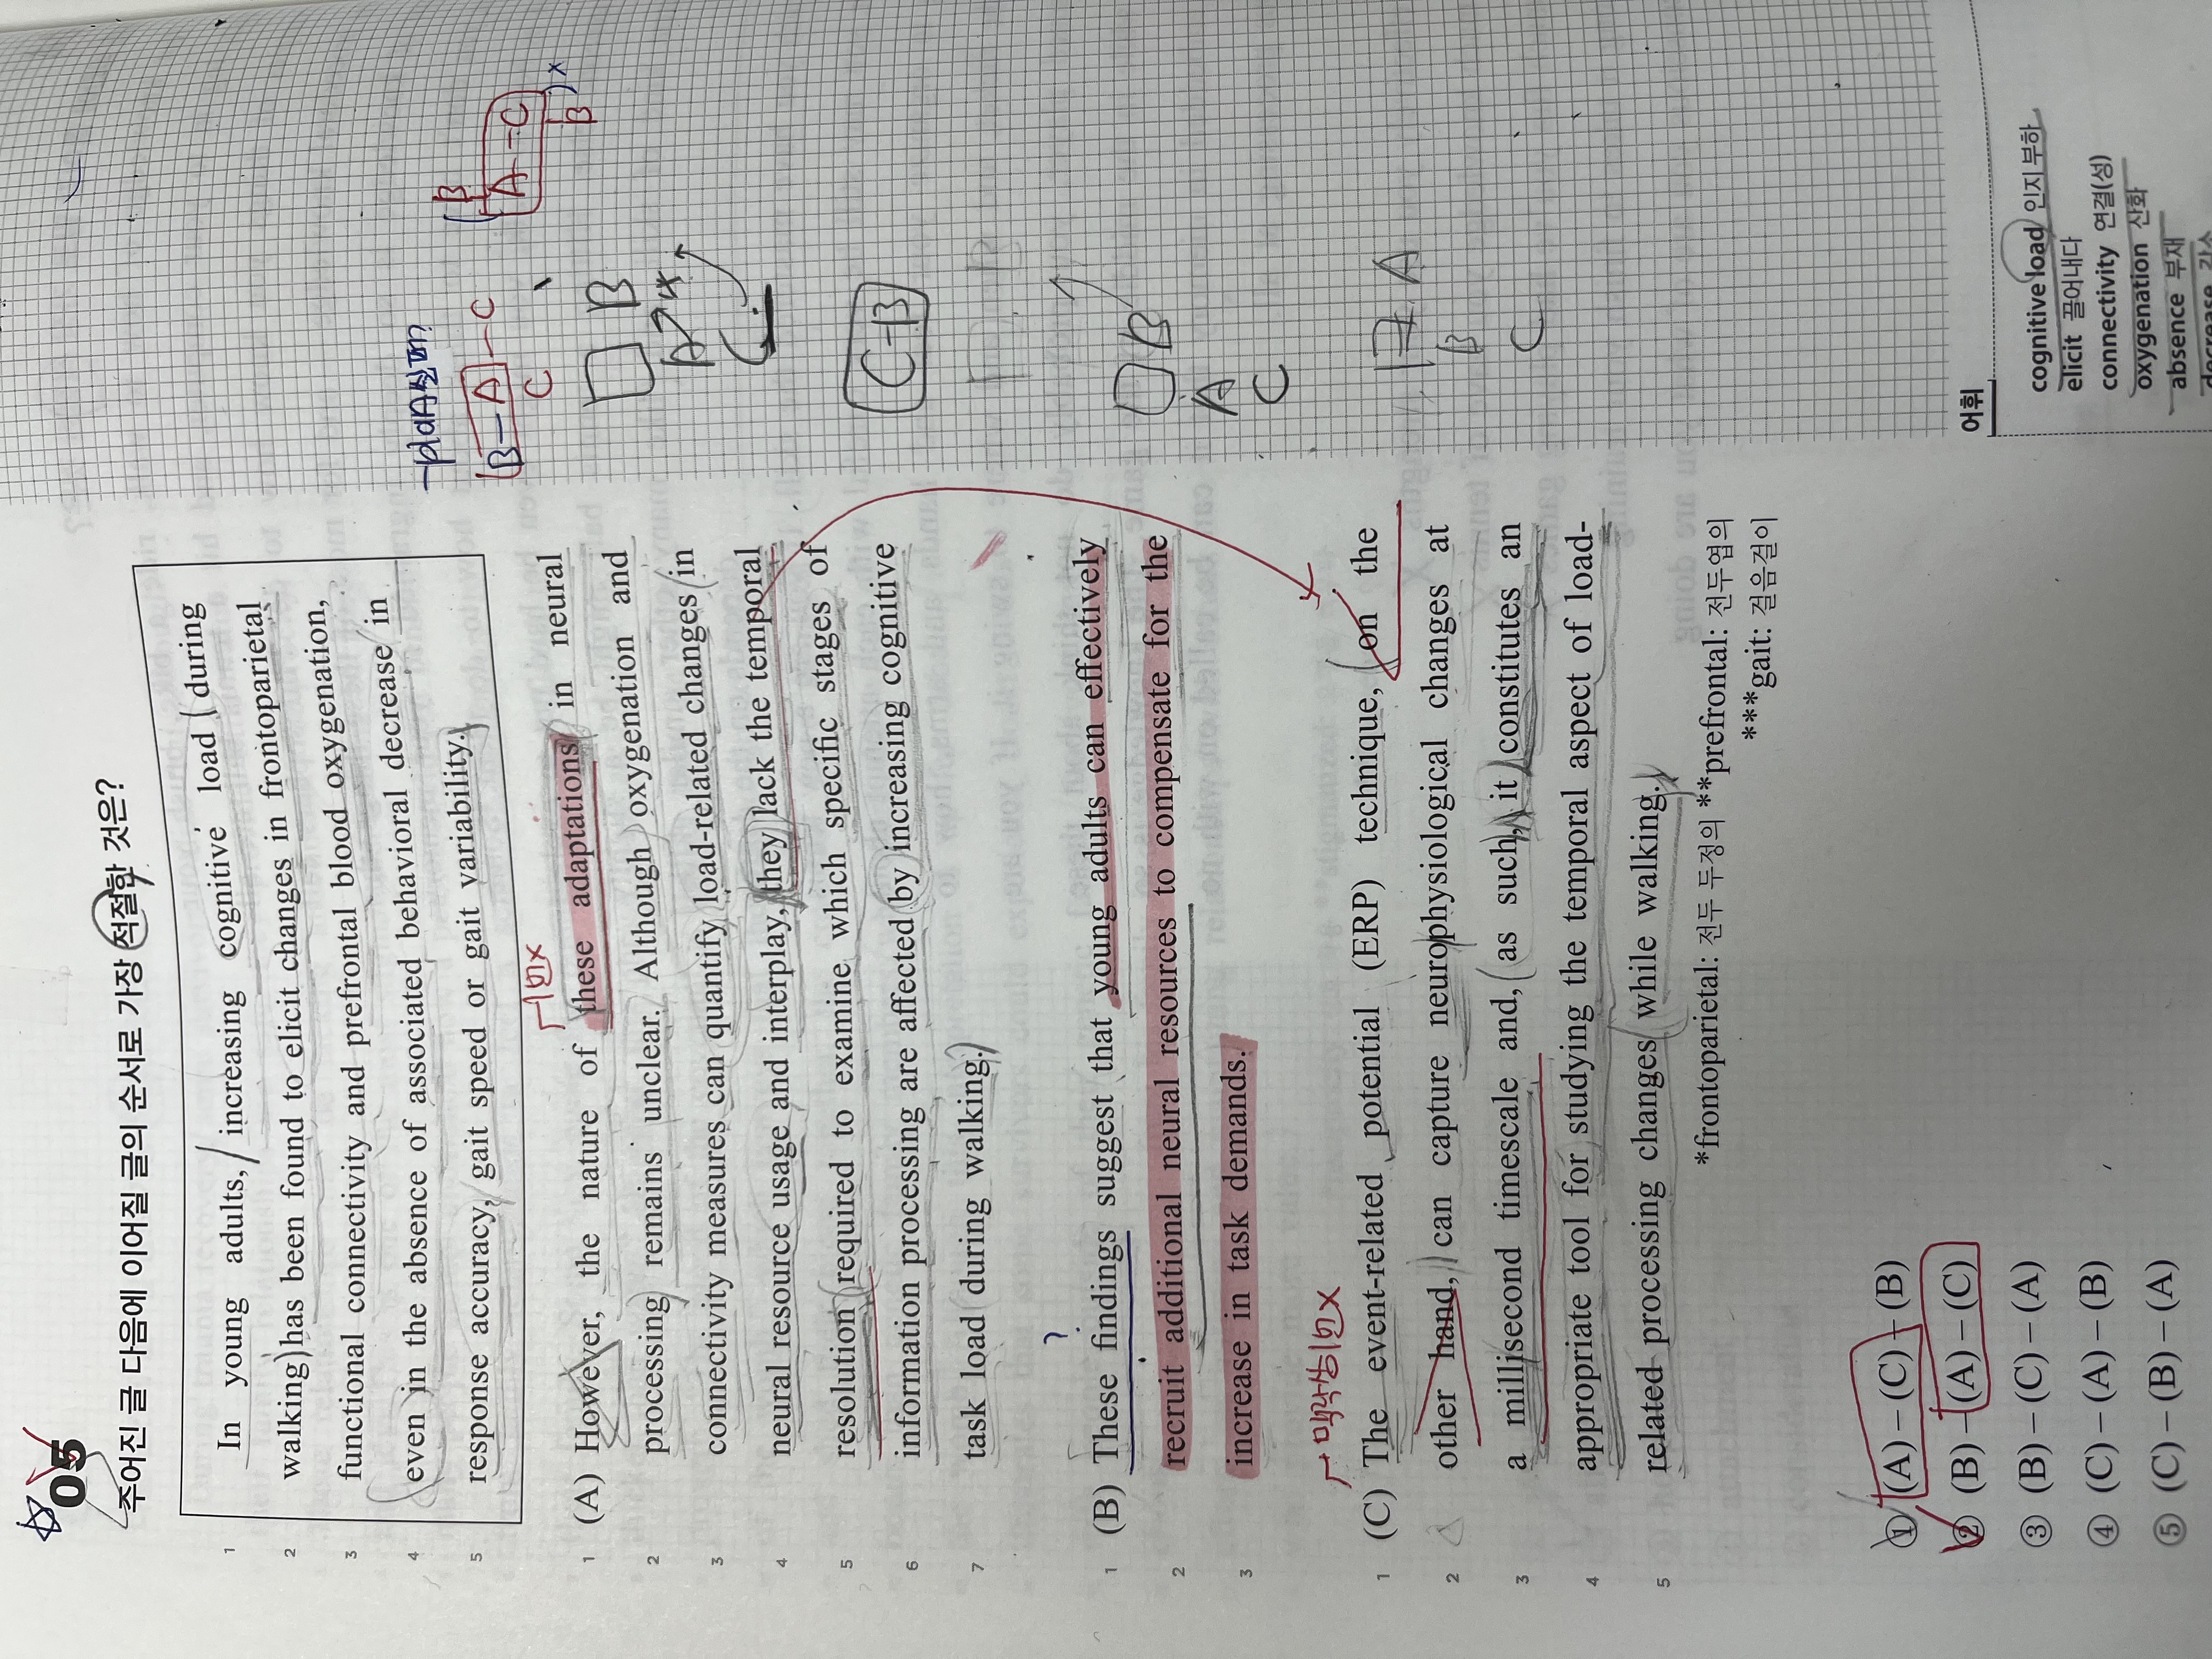 05
주어진 글 다음에 이어질 글의 순서로 가장 적절한 것은?
1 In young adults, increasing cognitive load during
2 walking has been found to elicit changes in frontoparietal
3 functional connectivity and prefrontal blood oxygenation,
4 even in the absence of associated behavioral decrease in
5 response accuracy, gait speed or gait variability.
기반X
1 (A) However, the nature of these adaptations in neural
2 processing remains unclear. Although oxygenation and
3 connectivity measures can quantify load-related changes in
4 neural resource usage and interplay, they lack the temporal
5 resolution required to examine which specific stages of
6 information processing are affected by increasing cognitive
7 task load during walking.
?
1 (B) These findings suggest that young adults can effectively
2 recruit additional neural resources to compensate for the
3 increase in task demands.
1 (C) The event-related potential (ERP) technique, on the
2 other hand, can capture neurophysiological changes at
3 a millisecond timescale and, as such, it constitutes an
4 appropriate tool for studying the temporal aspect of load-
5 related processing changes while walking.
*frontoparietal: 전두 두정의 **prefrontal: 전두엽의
***gait: 걸음걸이
① (A) – (C) – (B)
② (B) – (A) – (C)
③ (B) – (C) – (A)
④ (C) – (A) – (B)
⑤ (C) – (B) – (A)
B – A – C
C
B
A – C
B
X
B
A
C – B
B
A
C
A
B
C
어휘
cognitive load 인지 부하
elicit 끌어내다
connectivity 연결(성)
oxygenation 산화
absence 부재
decrease 감소